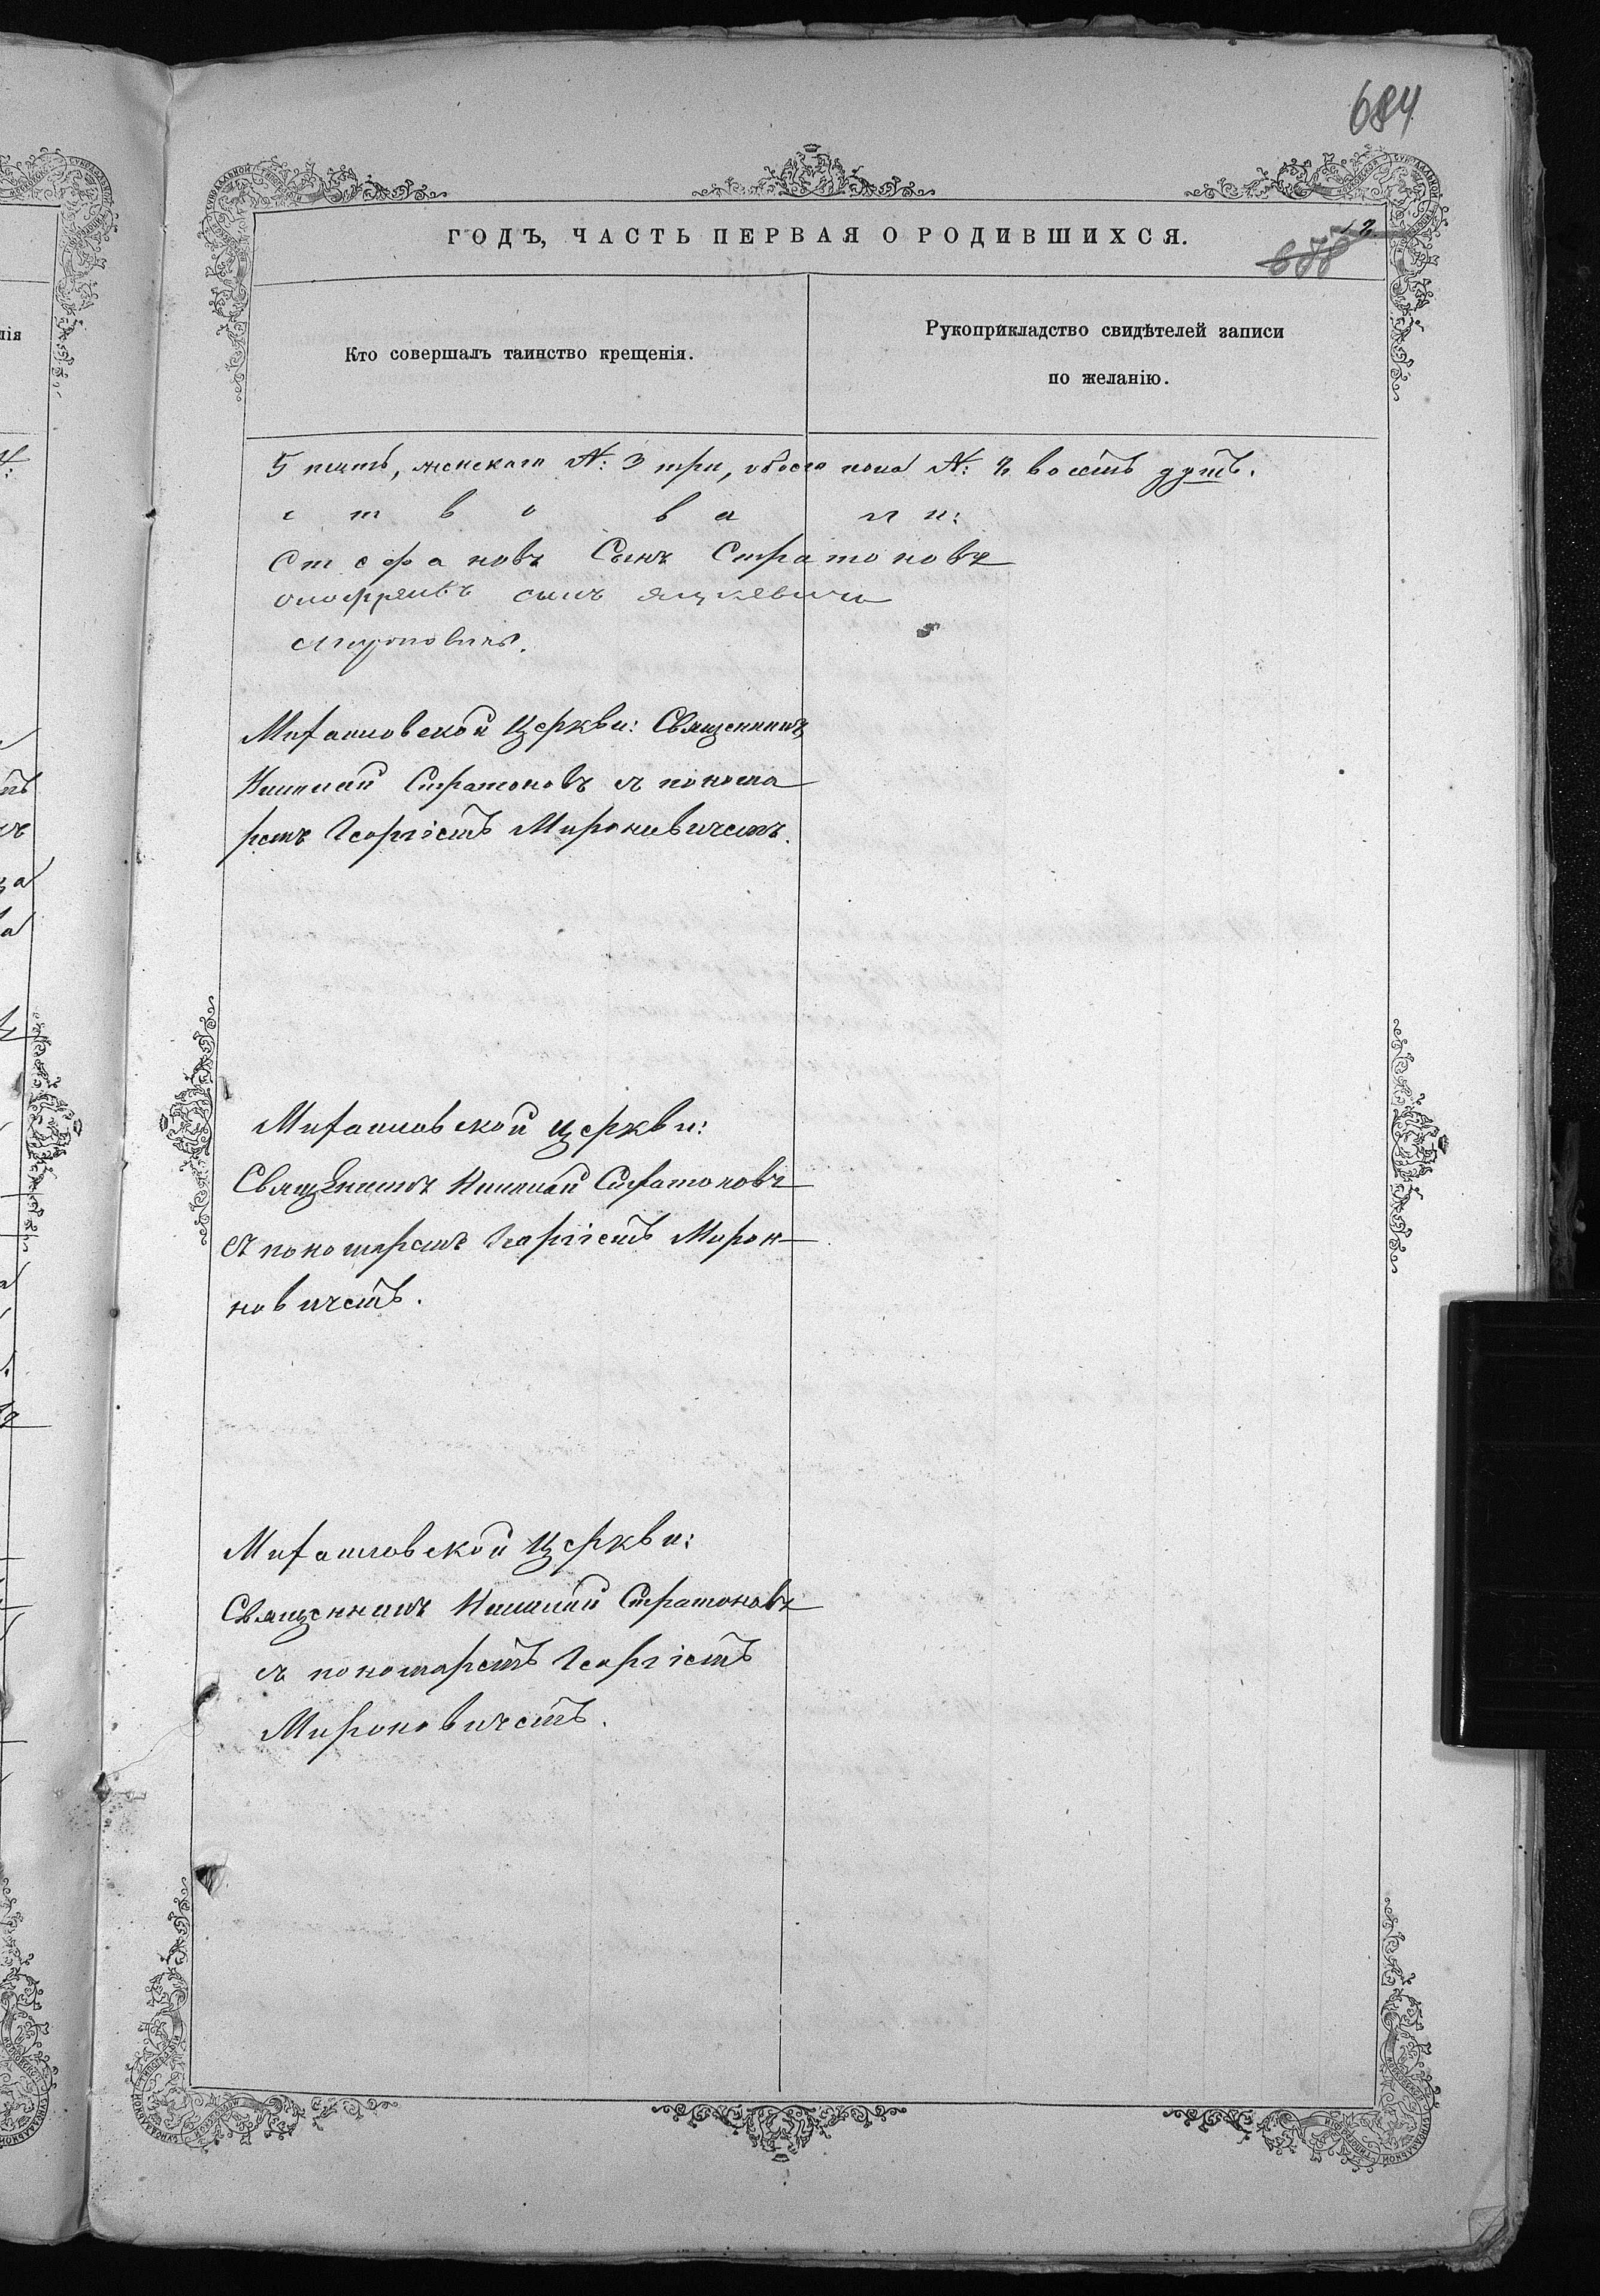 684
ГОДЪ, ЧАСТЬ ПЕРВАЯ О РОДИВШИХСЯ.
12.
Кто совершалъ таинство крещенія.
Рукоприкладство свидѣтелей записи
по желанію.
5 пять, женскаго №: 3 три, обоего пола №: 8 восемь душъ.
с т в о в а л и:
Стефановъ Сынъ Стратоновъ
сынъ
Мироновичъ.
Михаиловской Церкви: Священникъ
Николай Стратоновъ съ понома
ремъ Георгіемъ Мироновичемъ.
Михаиловской церкви:
Священникъ Николай Стратоновъ
съ пономаремъ Георгіемъ Миро
новичемъ.
Михаиловской Церкви:
Священникъ Николай Стратоновъ
съ пономаремъ Георгіемъ
Мироновичемъ.